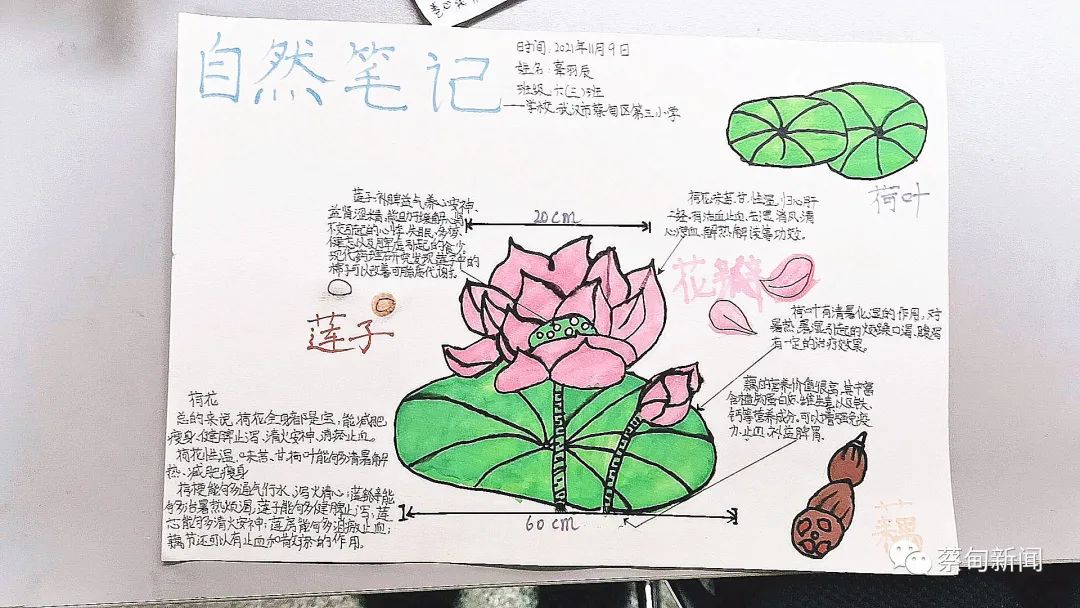 自然笔记
时间:2021年11月9日
姓名:寥羽辰
班级:六(三)班
学校:武汉市蔡甸区第三小学
荷叶
莲子:补脾益气,养心安神、
益肾涩精,能助于缓解心肾
不交引起的心悸、失眠、多梦、
健忘以及脾虚引起的食少。
20cm
荷花味苦、甘,性温,归心肝
二经,有活血止血、去湿消风、清
心凉血、解热解毒等功效。
花瓣
莲子
荷叶有清暑化湿的作用,对
暑热、暑湿引起的烦躁口渴、腹泻
有一定的治疗效果。
藕的营养价值很高,其中富
含植物蛋白质、维生素以及铁、
钙等营养成分,可以增强免疫
力、止血、补益脾胃。
荷花
总的来说,荷花全身都是宝,能减肥
瘦身、健脾止泻、清火安神、消瘀止血。
荷花性温、味苦、甘荷叶能够清暑解
热、减肥瘦身
荷梗能够通气行水、泻火清心;莲
够治暑热烦渴,莲子能够健脾止泻,莲
芯能够清火安神;莲房能够消瘀止血;
藕节还可以有止血和散瘀的作用。
60cm
藕
蔡甸新闻